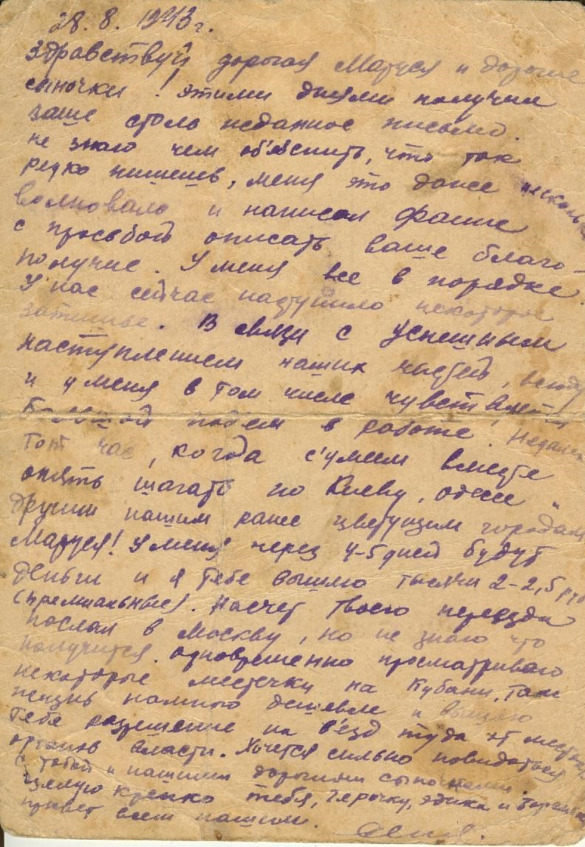 28. 8. 1943 г.
Здравствуй дорогая Маруся и дорогие
сыночки! этими днями получил
ваше столь неданное письмо.
не знаю чем об'яснить, что так
редко пишешь, меня это даже
волновало и написал Фаине
с просьбой описать ваше благо-
получие. У меня все в порядке
У нас сейчас наступило некоторое
затишье. В связи с успешным
наступлением наших частей, всюду
и у меня в том числе чувствуется
большой под'ем в работе! Недалек
тот час, когда с'умеем вместе
опять шагать по Киеву, одесе и
другим нашим ранее цветущим городам
Маруся! У меня через 4-5 дней будут
деньги и я тебе вышлю тысячи 2-2,5 руб
(премиальные). Насчет твоего переезда
послал в Москву, но не знаю что
получится. одновременно просматриваю
некоторые местечки на Кубани, там
жизнь намного дешевле и вышлю
тебе разрешение на в'езд туда от местных
органов власти. Хочется сильно повидаться
с тобой и нашими дорогими сыночками.
Целую крепко тебя, Герочку, эдика и
привет всем нашим.